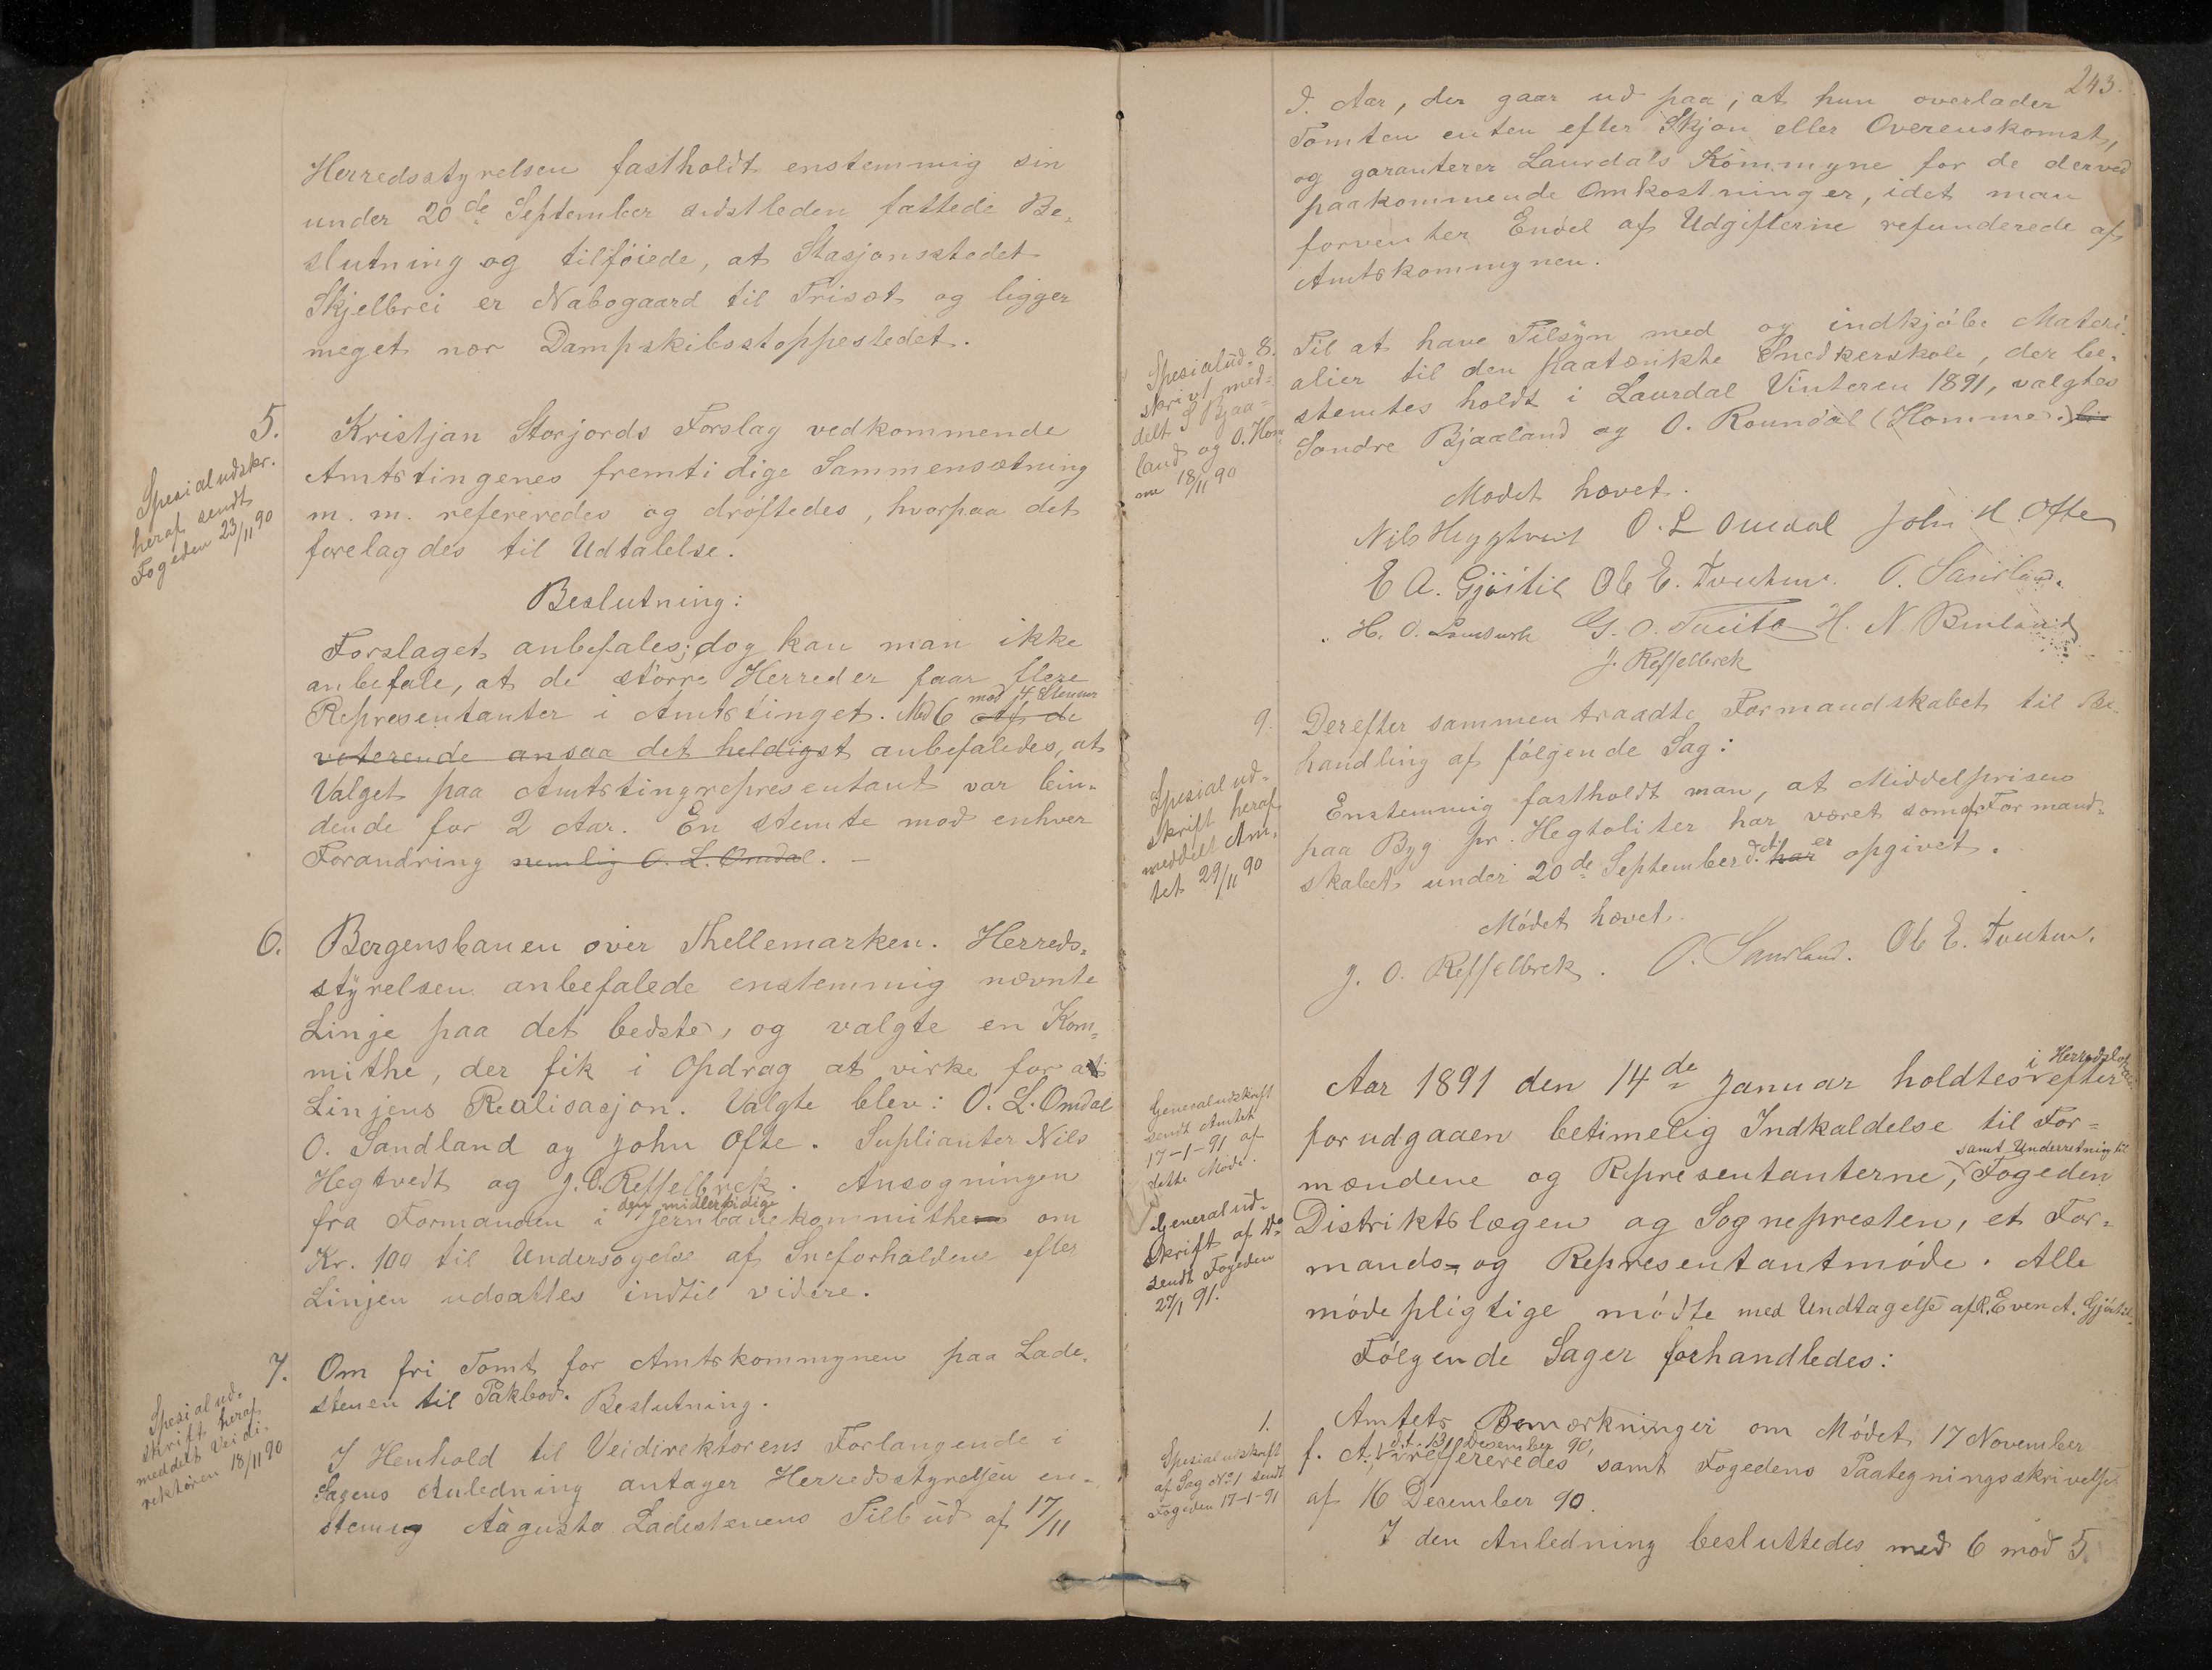 Herredsstyrelsen fastholdt enstemmig sin
under 20de September sidstleden fattede Be-
slutning og tilföiede, at Stasjonsstedet
Skjelbrei er Nabogaard til Trisæt og ligger
meget nær Dampskibsstoppestedet.
5.
Spesialudskr.
heraf sendt
Fogeden 23/11 90
Kristjan Storjords Forslag vedkommende
Amtstingenes fremtidige Sammensætning
m. m. refereredes og dröftedes, hvorpaa det
forelagdes til Udtalelse.
Beslutning:
Forslaget anbefales; dog kan man ikke
anbefale, at de större Herreder faar flere
Representanter i Amtstinget. Med 6 mod 4 Stemmer Af de
voterende ansaa det heldigst anbefaledes, at
Valget paa Amtstingrepresentant var bin-
dende for 2 Aar. En stemte mod enhver
Forandring nemlig O. L. Omdal. —
6.
Bergensbanen over Thellemarken. Herreds-
styrelsen anbefalede enstemmig nævnte
Linje paa det bedste, og valgte en Kom-
mithe, der fik i Opdrag at virke for at
Linjens Realisasjon. Valgte blev: O. L. Omdal
O. Sandland og John Ofte. Suplianter Nils
Hegtvedt og J. O. Reffelbrek. Ansøgningen
fra Formanden i den midlertidige Jernbanekommithe om
Kr. 100 til Undersøgelse af Sneforholdene efter
Linjen udsattes indtil videre.
7.
Spesialud-
skrift heraf
meddelt Veidi-
rektøren 18/11 90
Om fri Tomt for Amtskommynen paa Lade-
stenen til Pakbod. Beslutning.
I Henhold til Veidirektørens Forlangende i
Sagens Anledning antager Herredsstyrelsen en-
stemig Aagusta Ladestenens Tilbud af 17/11
243.
d. Aar, der gaar ud paa, at hun overlader
Tomten enten efter Skjøn eller Overenskomst,
og garanterer Laurdals Kommyne for de derved
paakommende Omkostninger, idet man
forventer Endel af Udgifterne refunderede af
Amtskommynen.
8.
Spesialud-
skrivt med-
delt S Bjaa-
land og O. Hom
me 18/11 90
Til at have Tilsyn med og indkjøbe Materi-
alier til den paatænkte Snedkerskole, der be-
stemtes holdt i Laurdal Vinteren 1891, valgtes
Sondre Bjaaland og O. Roundal (Homme.)
Mødet hævet.
Nils Heggtveit O. L Omdal John H. Ofte
E A. Gjöitil Ole E. Tveitun. O. Sandland.
H. O. G. O. Tveito H. N. Bmland
J. Reffelbrek
9.
Spesialud-
skrift heraf
meddelt Am-
tet 29/11 90
Derefter sammentraadte Formandskabet til Be-
handling af følgende Sag:
Enstemmig fastholdt man, at Middelprisen
paa Byg pr. Hegtoliter har været som af Formand-
skabet under 20de September d. A. har er opgivet.
Mödet hævet.
J. O. Reffelbrek. O. Sandland. Ole E. Tveitun.
Generaludskrift
sendt Amtet
17-1-91 af
dette Møde.
Generalud-
skrift af Do
sendt Fogeden
27/1 91.
Aar 1891 den 14de Januar holdtes i Herredslokalet efter
forudgaaen betimelig Indkaldelse til For-
mændene og Representanterne, samt Underretning til Fogeden
Distriktslægen og Sognepresten, et For-
mands- og Representantmöde. Alle
mödepligtige mödte med Undtagelse af R. Even A. Gjöitil.
Fölgende Sager forhandledes:
1.
Spesialudskrift
af Sag No 1 sendt
Fogeden 17-1-91
Amtets Bemærkninger om Mödet 17 November
f. A., dat. 13 Desember 90, refereredes samt Fogedens Paategningsskrivelse
af 16 December 90.
I den Anledning besluttedes med 6 mod 5